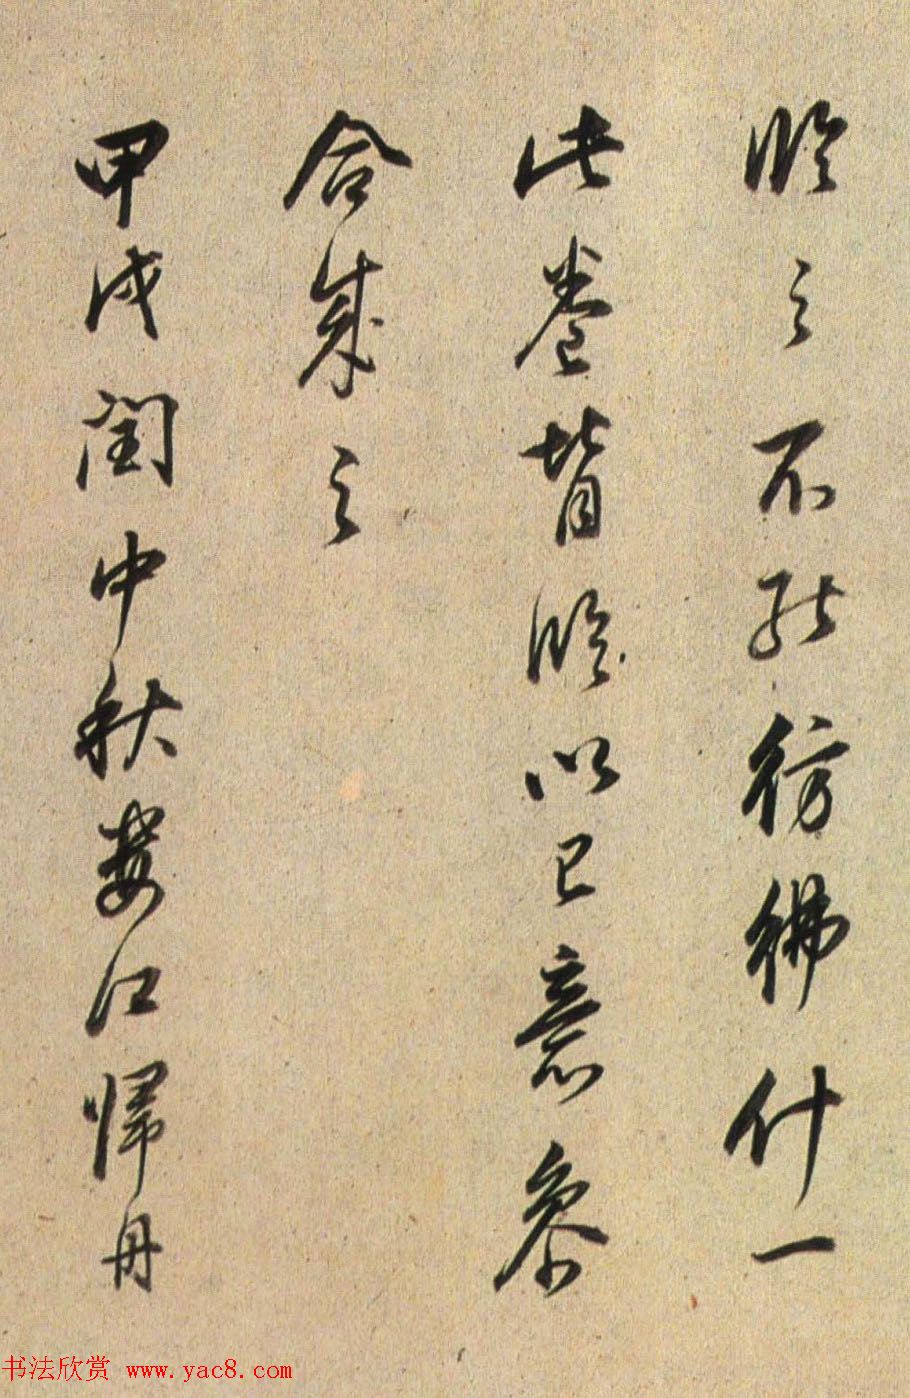 臨之不能彷彿什一
此卷皆臨以己意參
合成之
甲戌閏中秋婁江歸舟
书法欣赏 www.yac8.com